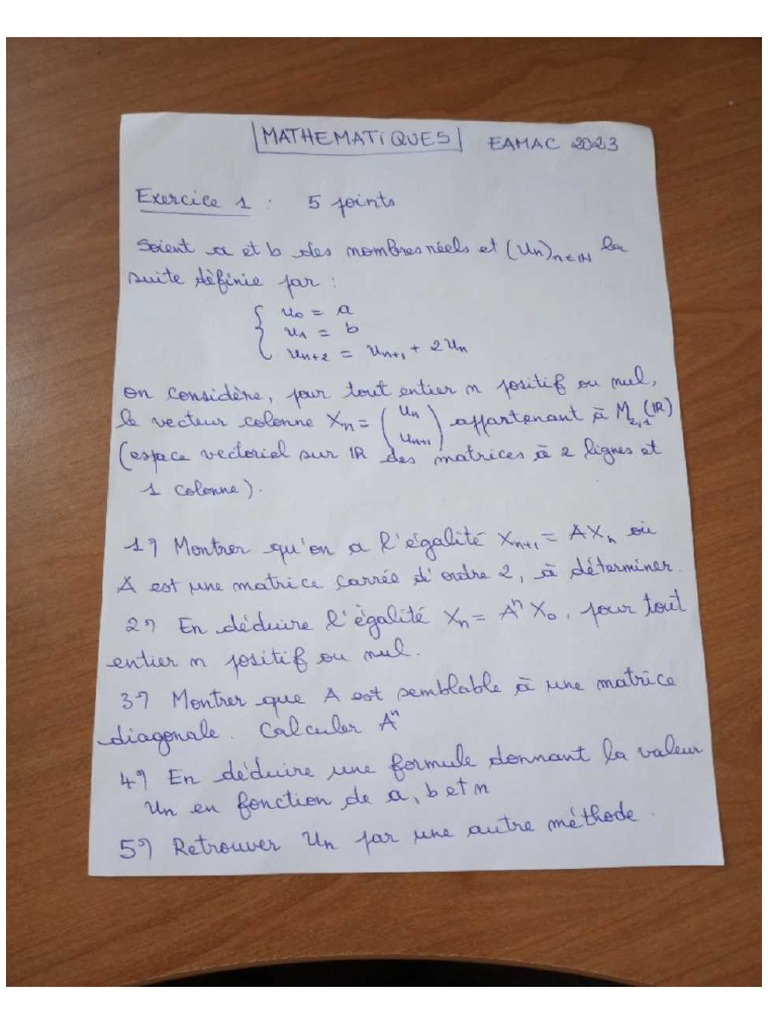 MATHEMATIQUES EAMAC 2023
Exercice 1 : 5 points
Soient a et b des nombres réels et (Un)n∈IN la
suite définie par :
{ u0 = a
u1 = b
un+2 = un+1 + 2un
on considère, pour tout entier n positif ou nul,
le vecteur colonne Xn = (un un+1) appartenant à M2,1(IR)
(espace vectoriel sur IR des matrices à 2 lignes et
1 colonne).
1°) Montrer qu'on a l'égalité Xn+1 = AXn où
A est une matrice carrée d'ordre 2, à déterminer.
2°) En déduire l'égalité Xn = A^n X0, pour tout
entier n positif ou nul.
3°) Montrer que A est semblable à une matrice
diagonale. Calculer A^n
4°) En déduire une formule donnant la valeur
Un en fonction de a, b et n
5°) Retrouver Un par une autre méthode.